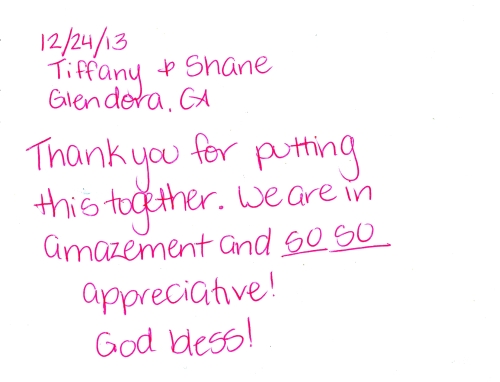 12/24/13
Tiffany & Shane
Glendora, CA
Thank you for putting
this together. We are in
amazement and so so
appreciative!
God bless!